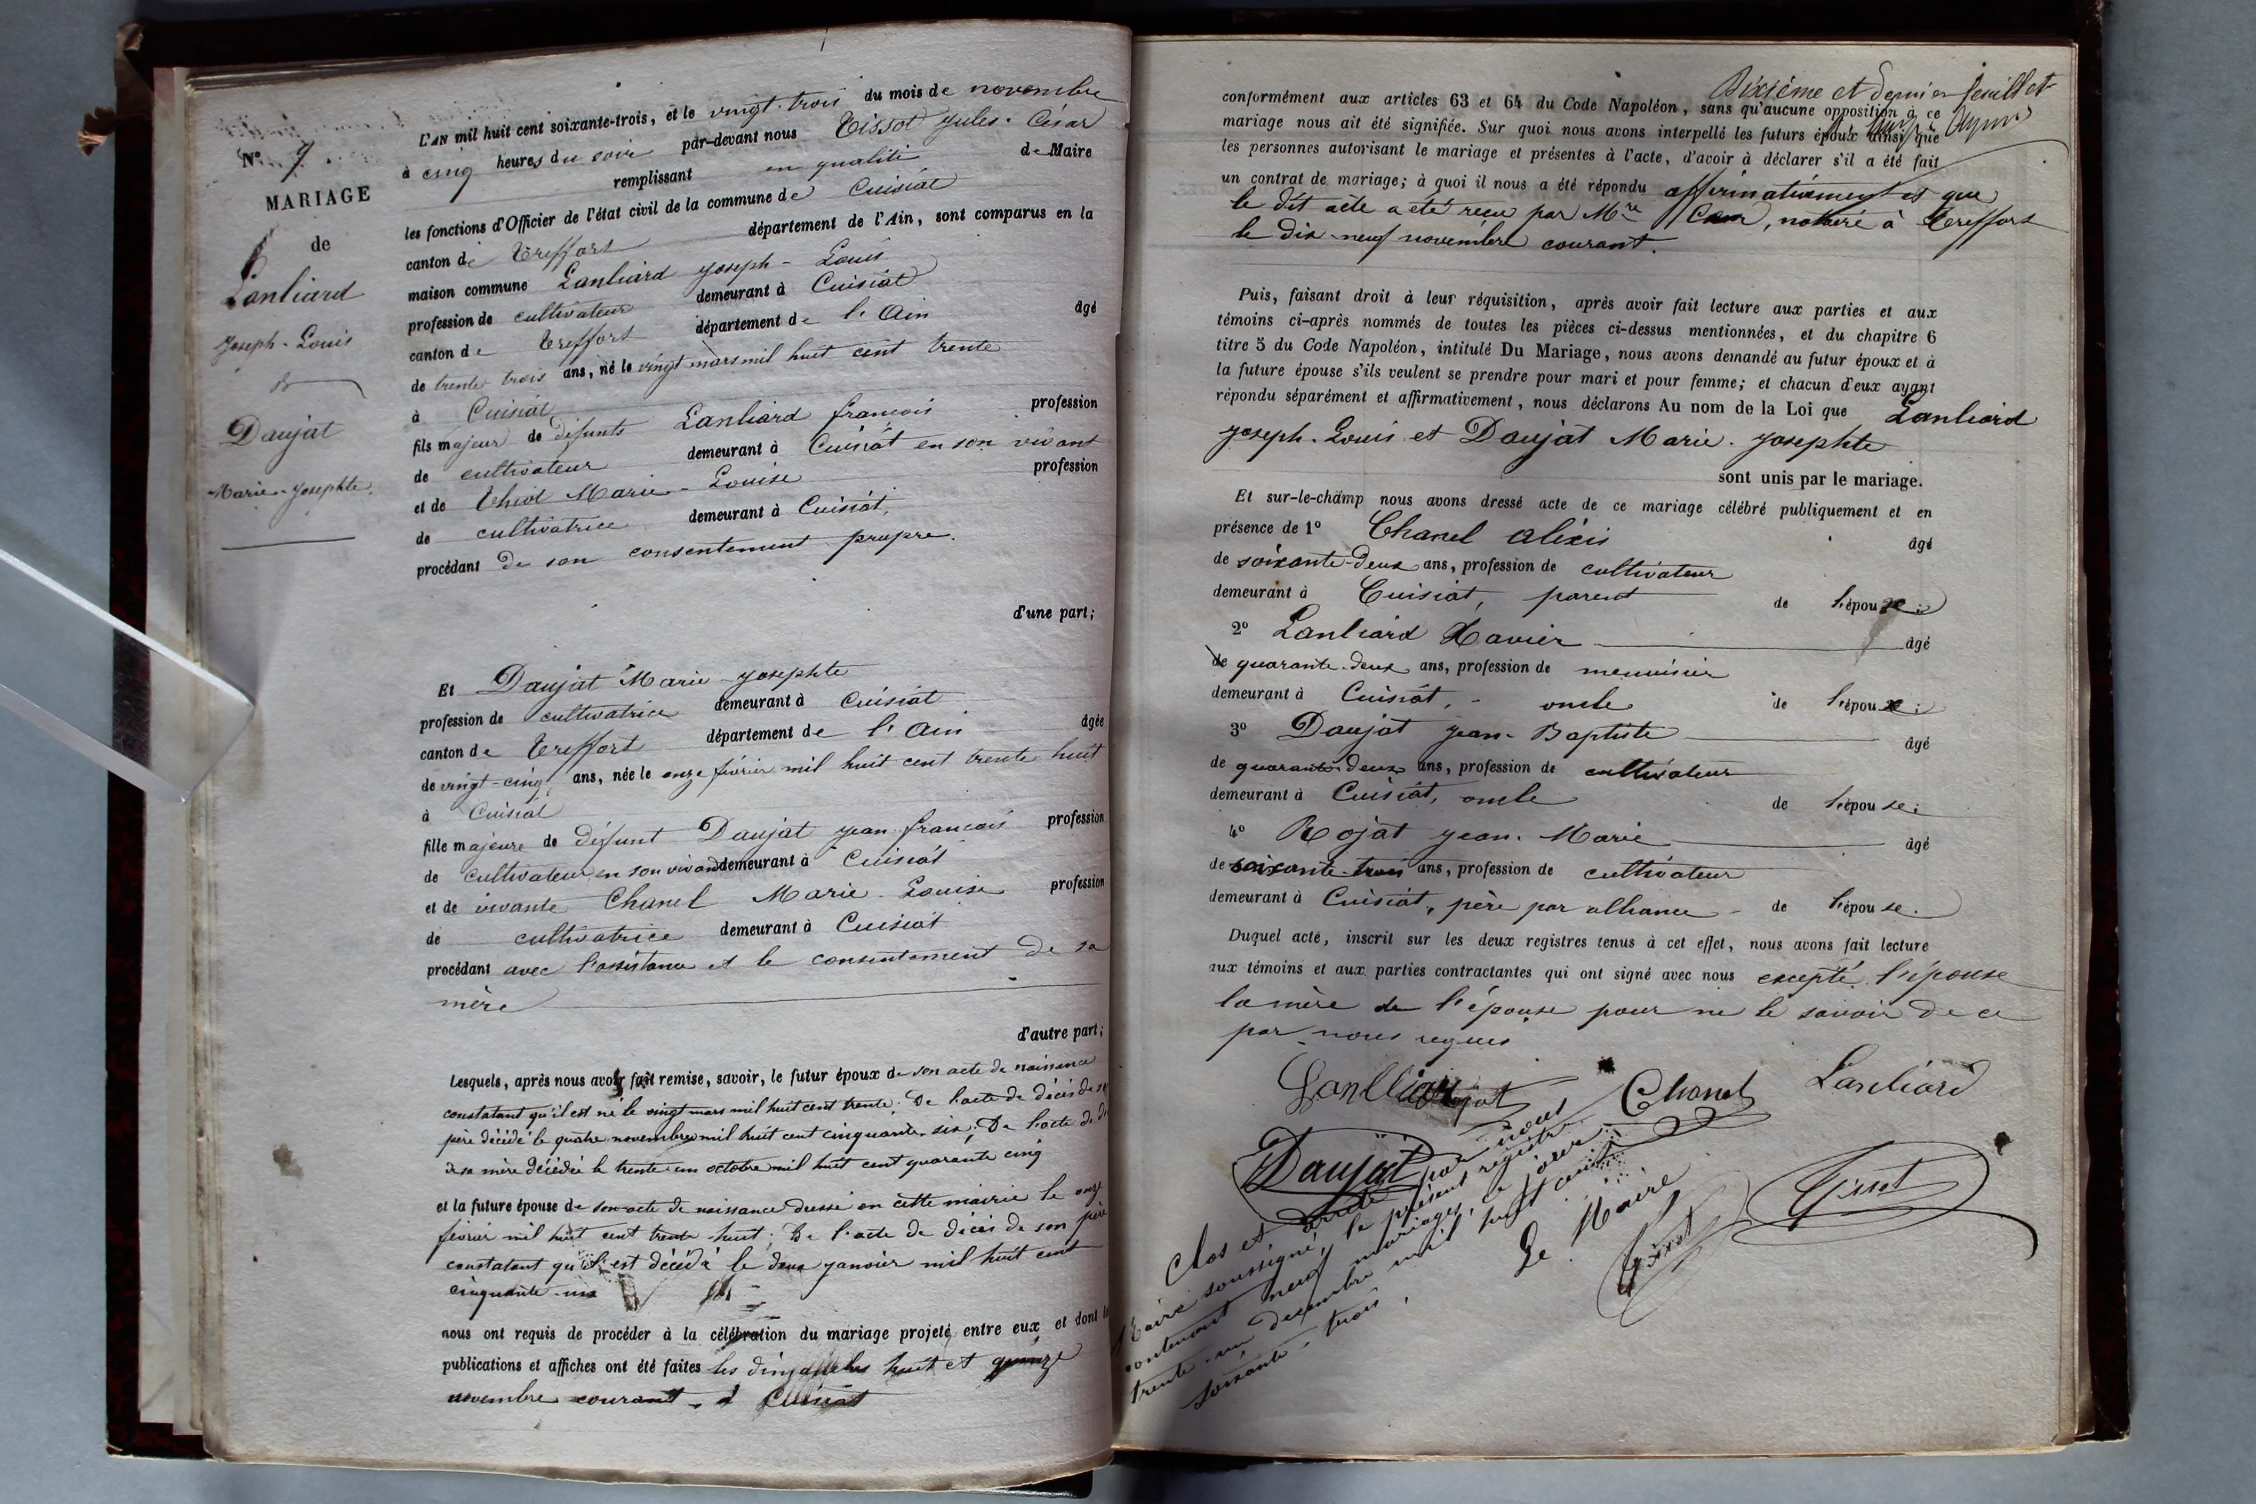 N° 9
MARIAGE
de
Lanliard
Joseph-Louis
&
Daujat
Marie-Josephte.
L'AN mil huit cent soixante-trois, et le vingt-trois du mois de novembre
à cinq heures du soir par-devant nous Tissot Jules-César
remplissant en qualité de Maire
les fonctions d'Officier de l'état civil de la commune de Cuisiat
canton de Treffort département de l'Ain, sont comparus en la
maison commune Lanliard Joseph-Louis
profession de cultivateur demeurant à Cuisiat
canton de Treffort département de l'Ain âgé
de trente trois ans, né le vingt mars mil huit cent trente
à Cuisiat
fils majeur de défunts Lanliard françois profession
de cultivateur demeurant à Cuisiat en son vivant
et de Thiot Marie-Louise profession
de cultivatrice demeurant à Cuisiat,
procédant de son consentement propre.
d'une part;
Et Daujat Marie-Josephte
profession de cultivatrice demeurant à Cuisiat
canton de Treffort département de l'Ain âgée
de vingt-cinq ans, née le onze février mil huit cent trente huit
à Cuisiat
fille majeure de défunt Daujat Jean françois profession
de cultivateur en son vivant demeurant à Cuisiat
et de vivante Chanel Marie-Louise profession
de cultivatrice demeurant à Cuisiat
procédant avec l'assistance et le consentement de sa
mère
d'autre part;
Lesquels, après nous avoir fait remise, savoir, le futur époux de son acte de naissance
constatant qu'il est né le vingt mars mil huit cent trente; De l'acte de décès de son
père décédé le quatre novembre mil huit cent cinquante-six; De l'acte de
de sa mère décédée le trente-un octobre mil huit cent quarante cinq
et la future épouse de son acte de naissance dressé en cette mairie le onze
février mil huit cent trente-huit; De l'acte de décès de son père
constatant qu'il est décédé le deux janvier mil huit cent
cinquante-un
nous ont requis de procéder à la célébration du mariage projeté entre eux et dont les
publications et affiches ont été faites les dimanches huit et quinze
novembre courant à Cuisiat
Dixième et dernier feuillet
conformément aux articles 63 et 64 du Code Napoléon, sans qu'aucune opposition à ce
mariage nous ait été signifiée. Sur quoi nous avons interpellé les futurs époux ainsi que
les personnes autorisant le mariage et présentes à l'acte, d'avoir à déclarer s'il a été fait
un contrat de mariage; à quoi il nous a été répondu affirmativement et que
le dit acte a été reçu par Mre , notaire à Treffort
le dix-neuf novembre courant.
Puis, faisant droit à leur réquisition, après avoir fait lecture aux parties et aux
témoins ci-après nommés de toutes les pièces ci-dessus mentionnées, et du chapitre 6
titre 5 du Code Napoléon, intitulé Du Mariage, nous avons demandé au futur époux et à
la future épouse s'ils veulent se prendre pour mari et pour femme; et chacun d'eux ayant
répondu séparément et affirmativement, nous déclarons Au nom de la Loi que Lanliard
Joseph-Louis et Daujat Marie-Josephte
sont unis par le mariage.
Et sur-le-champ nous avons dressé acte de ce mariage célébré publiquement et en
présence de 1° Chanel Alexis âgé
de soixante-deux ans, profession de cultivateur
demeurant à Cuisiat, parent de l'épouse;
2° Lanliard Xavier âgé
de quarante-deux ans, profession de menuisier
demeurant à Cuisiat, - oncle de l'époux;
3° Daujat Jean-Baptiste âgé
de quarante-deux ans, profession de cultivateur
demeurant à Cuisiat, oncle de l'épouse;
4° Rojat Jean-Marie âgé
de soixante-trois ans, profession de cultivateur
demeurant à Cuisiat, père par alliance - de l'épouse.
Duquel acte, inscrit sur les deux registres tenus à cet effet, nous avons fait lecture
aux témoins et aux parties contractantes qui ont signé avec nous excepté l'épouse
la mère de l'épouse pour ne le savoir de ce
par nous requis
Chanel Lanliard
Daujat Tissot
Clos et arrêté par nous
Maire soussigné, le présent registre
contenant neuf mariages, ce jour
trente-un décembre mil huit cent
soixante-trois.
Le Maire
Tissot